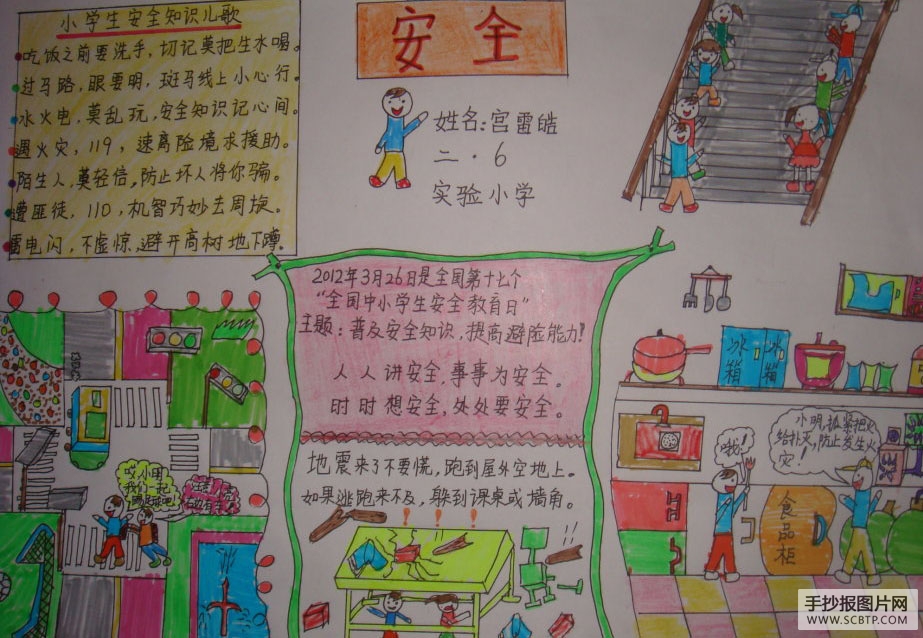 小学生安全知识儿歌
吃饭之前要洗手,切记莫把生水喝。
过马路,眼要明,斑马线上小心行。
水火电,莫乱玩,安全知识记心间。
遇火灾,119,速离险境求援助。
陌生人,莫轻信,防止坏人将你骗。
遭匪徒,110,机智巧妙去周旋。
雷电闪,不虚惊,避开高树地下蹲。
安全
姓名:宫雷皓
二·6
实验小学
2012年3月26日是全国第十七个
“全国中小学生安全教育日”
主题:普及安全知识,提高避险能力!
人人讲安全,事事为安全。
时时想安全,处处要安全。
地震来了不要慌,跑到屋外空地上。
如果逃跑来不及,躲到课桌或墙角。
冰箱
冰箱
哦!
小明,抓紧把火
给扑灭,防止发生火
灾!
食品柜
手抄报图片网
WWW.SCBTP.COM